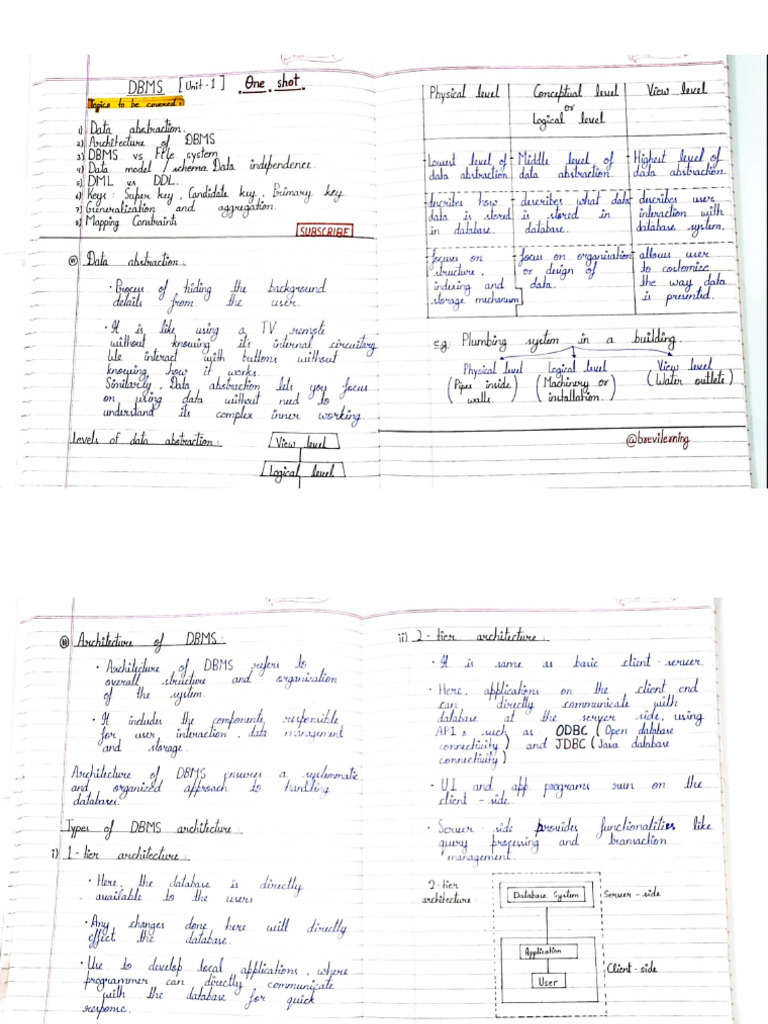 DBMS [Unit-1] One shot
Topics to be covered:
1) Data abstraction.
2) Architecture of DBMS
3) DBMS vs File system
4) Data model / schema. Data independence.
5) DML vs DDL.
6) Keys: Super key, Candidate key, Primary key
7) Generalization and aggregation.
8) Mapping Constraints
SUBSCRIBE
Data abstraction:
• Process of hiding the background
details from the user.
• It is like using a TV remote
without knowing its internal circuitary
We interact with buttons without
knowing how it works.
Similarly, Data abstraction lets you focus
on using data without need to
understand its complex inner working.
Levels of data abstraction:
View level
Logical level
Physical level
Conceptual level
or
Logical level
View level
Lowest level of
data abstraction
Middle level of
data abstraction.
Highest level of
data abstraction.
describes how
data is stored
in database.
describes what data
is stored in
database.
describes user
interaction with
database system.
focuses on
structure,
indexing and
storage mechanism
focus on organisation
or design of
data.
allows user
to costomize
the way data
is presented.
e.g: Plumbing system in a building.
Physical level
(Pipes inside
walls.)
Logical level
(Machinery or
installation.)
View level
(Water outlets)
@brevilerning
Architecture of DBMS:
• Architecture of DBMS refers to
overall structure and organization
of the system.
• It includes the components responsible
for user interaction, data management
and storage.
Architecture of DBMS ensures a systemmatic
and organized approach to handling
databases.
Types of DBMS architecture
i) 1-tier architecture:
• Here, the database is directly
available to the user
• Any changes done here will directly
effect the database.
• Use to develop local applications, where
programmer can directly communicate
with the database for quick
response.
ii) 2-tier architecture:
• It is same as basic client-server.
• Here, applications on the client end
can directly communicate with
database at the server side, using
API's such as ODBC (Open database
connectivity) and JDBC (Java database
connectivity)
• UI and app programs run on the
client-side.
• Server-side provides functionalities like
query processing and transaction
management.
2-tier
architecture
Database System
Server-side
Application
User
Client-side